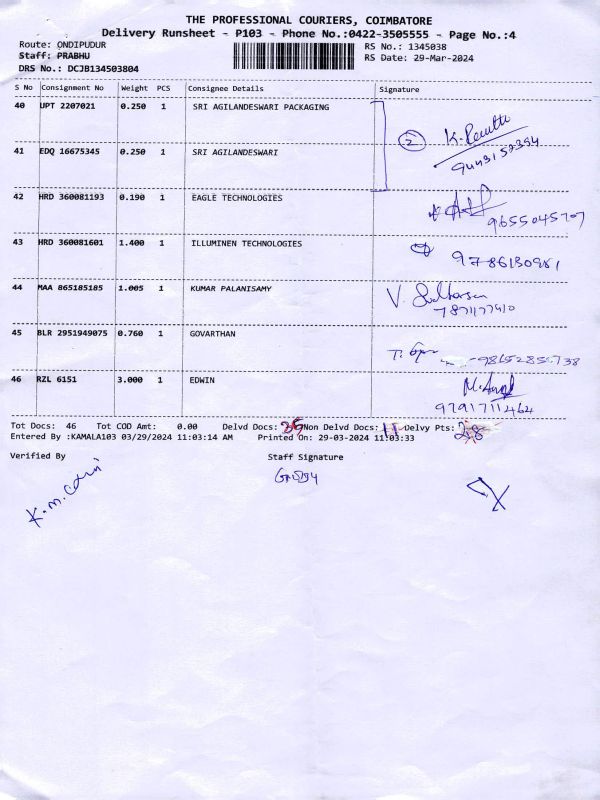 THE PROFESSIONAL COURIERS, COIMBATORE
Delivery Runsheet - P103 - Phone No.:0422-3505555 - Page No.:4
Route: ONDIPUDUR RS No.: 1345038
Staff: PRABHU RS Date: 29-Mar-2024
DRS No.: DCJB134503804
S No Consignment No Weight PCS Consignee Details Signature
40 UPT 2207021 0.250 1 SRI AGILANDESWARI PACKAGING
2
41 EDQ 16675345 0.250 1 SRI AGILANDESWARI
42 HRD 360081193 0.190 1 EAGLE TECHNOLOGIES
9655045707
43 HRD 360081601 1.400 1 ILLUMINEN TECHNOLOGIES
9786130961
44 MAA 865185185 1.005 1 KUMAR PALANISAMY V.
45 BLR 2951949075 0.760 1 GOVARTHAN
46 RZL 6151 3.000 1 EDWIN
9791711464
Tot Docs: 46 Tot COD Amt: 0.00 Delvd Docs: Non Delvd Docs: 11 Delvy Pts: 28
Entered By :KAMALA103 03/29/2024 11:03:14 AM Printed On: 29-03-2024 11:03:33
Verified By Staff Signature